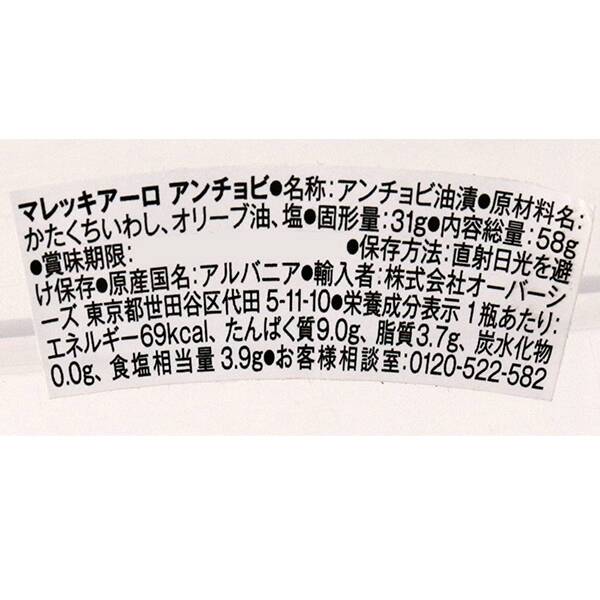 マレッキアーロ アンチョビ●名称:アンチョビ油漬●原材料名:
かたくちいわし、オリーブ油、塩●固形量:31g●内容総量:58g
●賞味期限: ●保存方法:直射日光を避
け保存●原産国名:アルバニア●輸入者:株式会社オーバーシ
ーズ 東京都世田谷区代田 5-11-10●栄養成分表示 1瓶あたり:
エネルギー69kcal、たんぱく質9.0g、脂質3.7g、炭水化物
0.0g、食塩相当量 3.9g●お客様相談室:0120-522-582